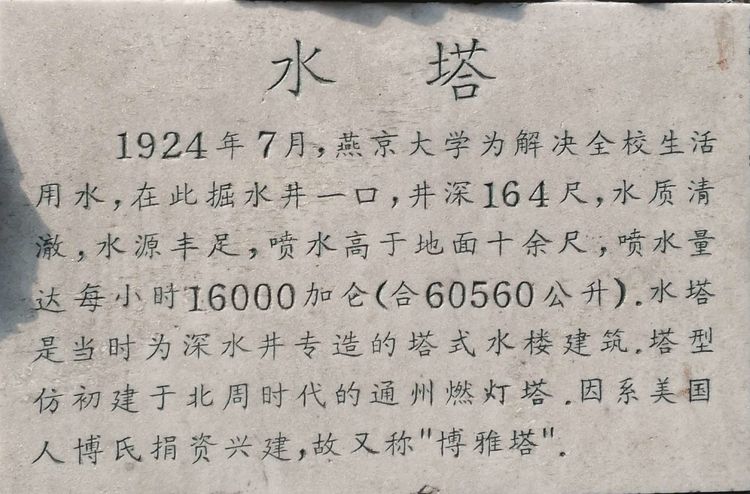 水 塔
1924年7月,燕京大学为解决全校生活
用水,在此掘水井一口,井深164尺,水质清
澈,水源丰足,喷水高于地面十余尺,喷水量
达每小时16000加仑(合60560公升).水塔
是当时为深水井专造的塔式水楼建筑.塔型
仿初建于北周时代的通州燃灯塔.因系美国
人博氏捐资兴建,故又称"博雅塔".